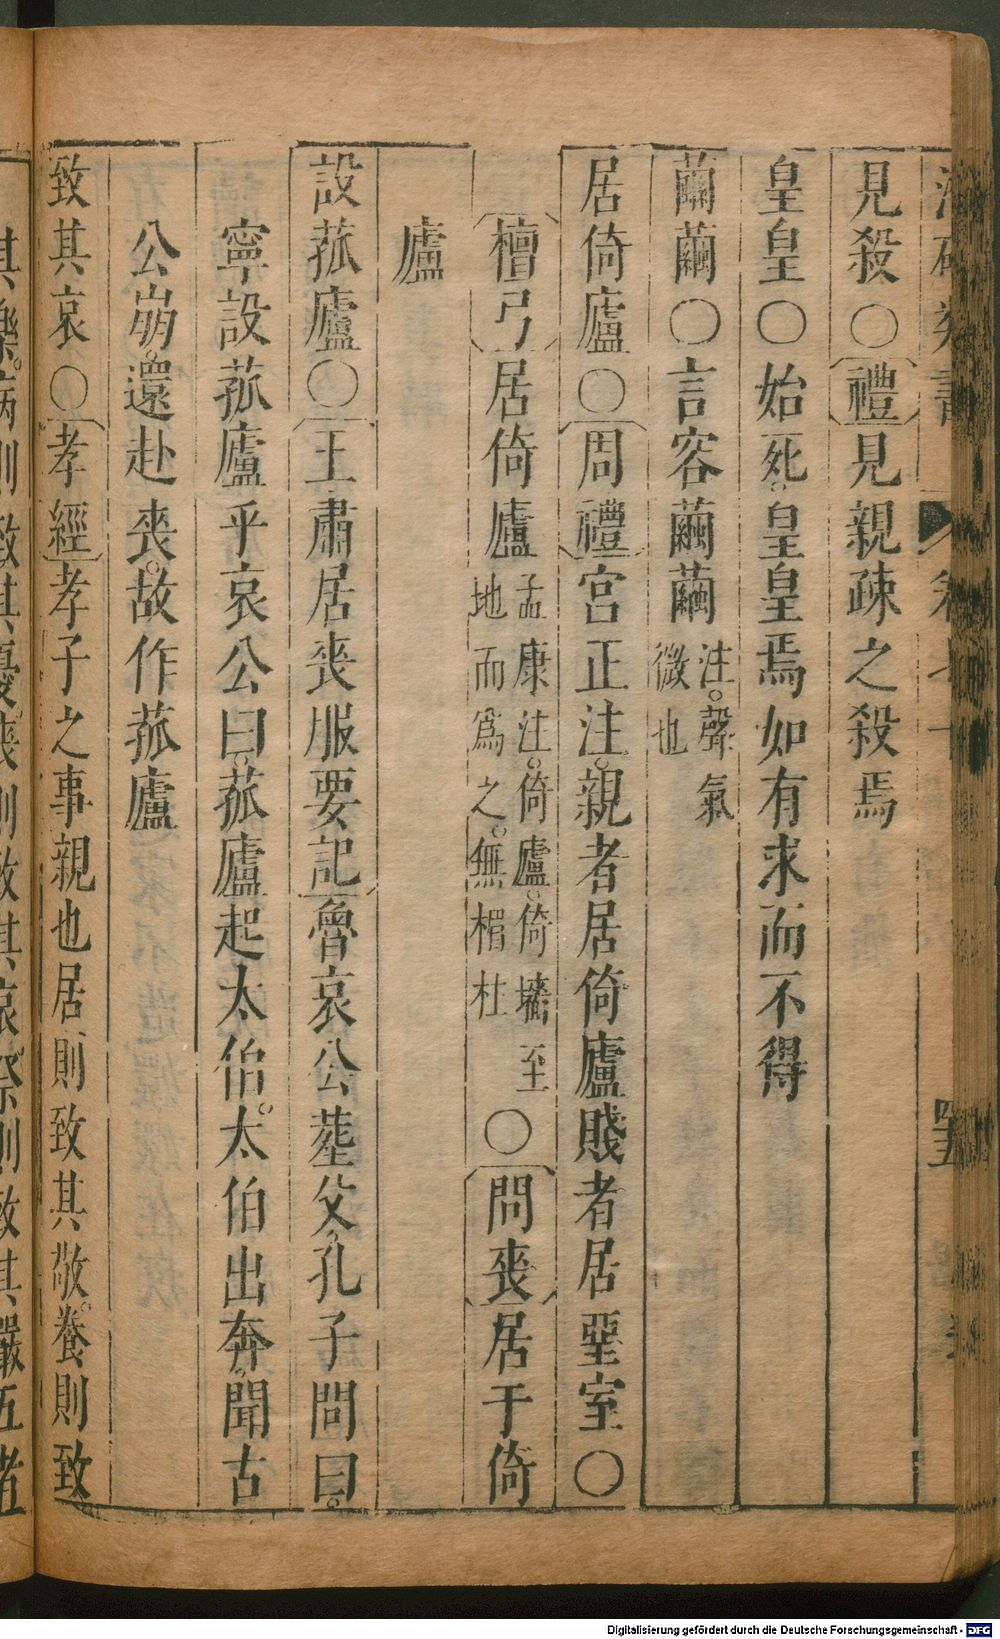 見殺〇禮見親疎之殺焉
皇皇〇始死皇皇焉如有求而不得
繭繭〇言容繭繭注聲氣微也
居倚廬〇周禮宮正注親者居倚廬賤者居堊室〇
檀弓居倚廬孟康注倚廬倚墻至地而爲之無楣柱〇問喪居于倚
廬
設菰廬〇王肅居喪服要記魯哀公葬父孔子問曰
寧設菰廬乎哀公曰菰廬起太伯太伯出奔聞古
公崩還赴喪故作菰廬
致其哀〇孝經孝子之事親也居則致其敬養則致
其樂病則致其憂喪則致其哀祭則致其嚴五者
Digitalisierung gefördert durch die Deutsche Forschungsgemeinschaft - DFG